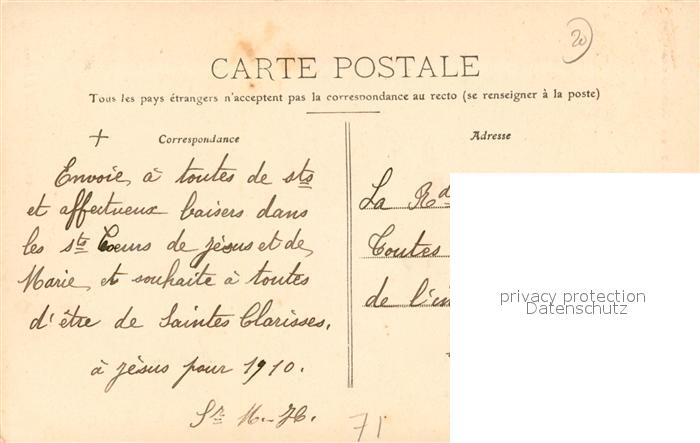 20
CARTE POSTALE
Tous les pays étrangers n'acceptent pas la correspondance au recto (se renseigner à la poste)
+ Correspondance
Envoie à toutes de sts
et affectueux baisers dans
les sts Coeurs de Jésus et de
Marie, et souhaite à toutes
d'être de Saintes Clarisses,
à Jésus pour 1910.
Sr M.-
71
Adresse
La Rd
Toutes
de l'im
privacy protection
Datenschutz